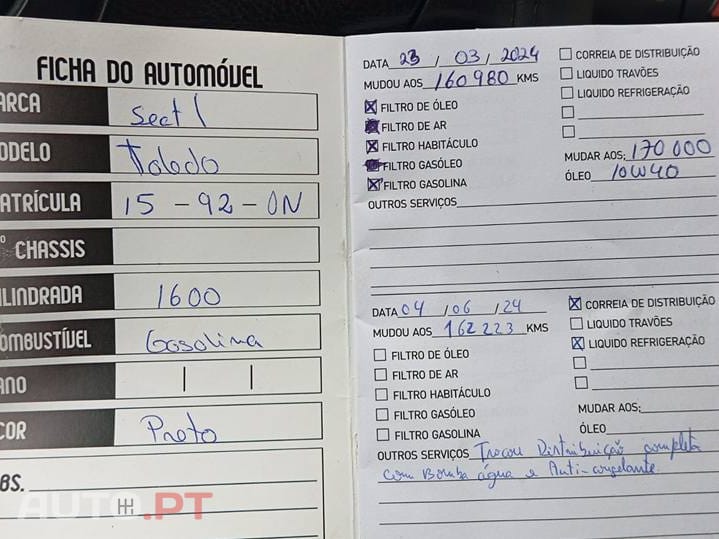 FICHA DO AUTOMÓVEL
ARCA Seat
ODELO Toledo
ATRÍCULA 15 - 92 - ON
º CHASSIS
ILINDRADA 1600
OMBUSTÍVEL Gasolina
ANO
COR Preto
BS.
AUTO.PT
DATA 23 / 03 / 2024
MUDOU AOS 160980 KMS
FILTRO DE ÓLEO
FILTRO DE AR
FILTRO HABITÁCULO
FILTRO GASÓLEO
FILTRO GASOLINA
CORREIA DE DISTRIBUIÇÃO
LIQUIDO TRAVÕES
LIQUIDO REFRIGERAÇÃO
MUDAR AOS: 170 000
ÓLEO 10W40
OUTROS SERVIÇOS
DATA 04 / 06 / 24
MUDOU AOS 162223 KMS
FILTRO DE ÓLEO
FILTRO DE AR
FILTRO HABITÁCULO
FILTRO GASÓLEO
FILTRO GASOLINA
CORREIA DE DISTRIBUIÇÃO
LIQUIDO TRAVÕES
LIQUIDO REFRIGERAÇÃO
MUDAR AOS:
ÓLEO
OUTROS SERVIÇOS Trocou Distribuição completa
com Bomba água e Anti-congelante